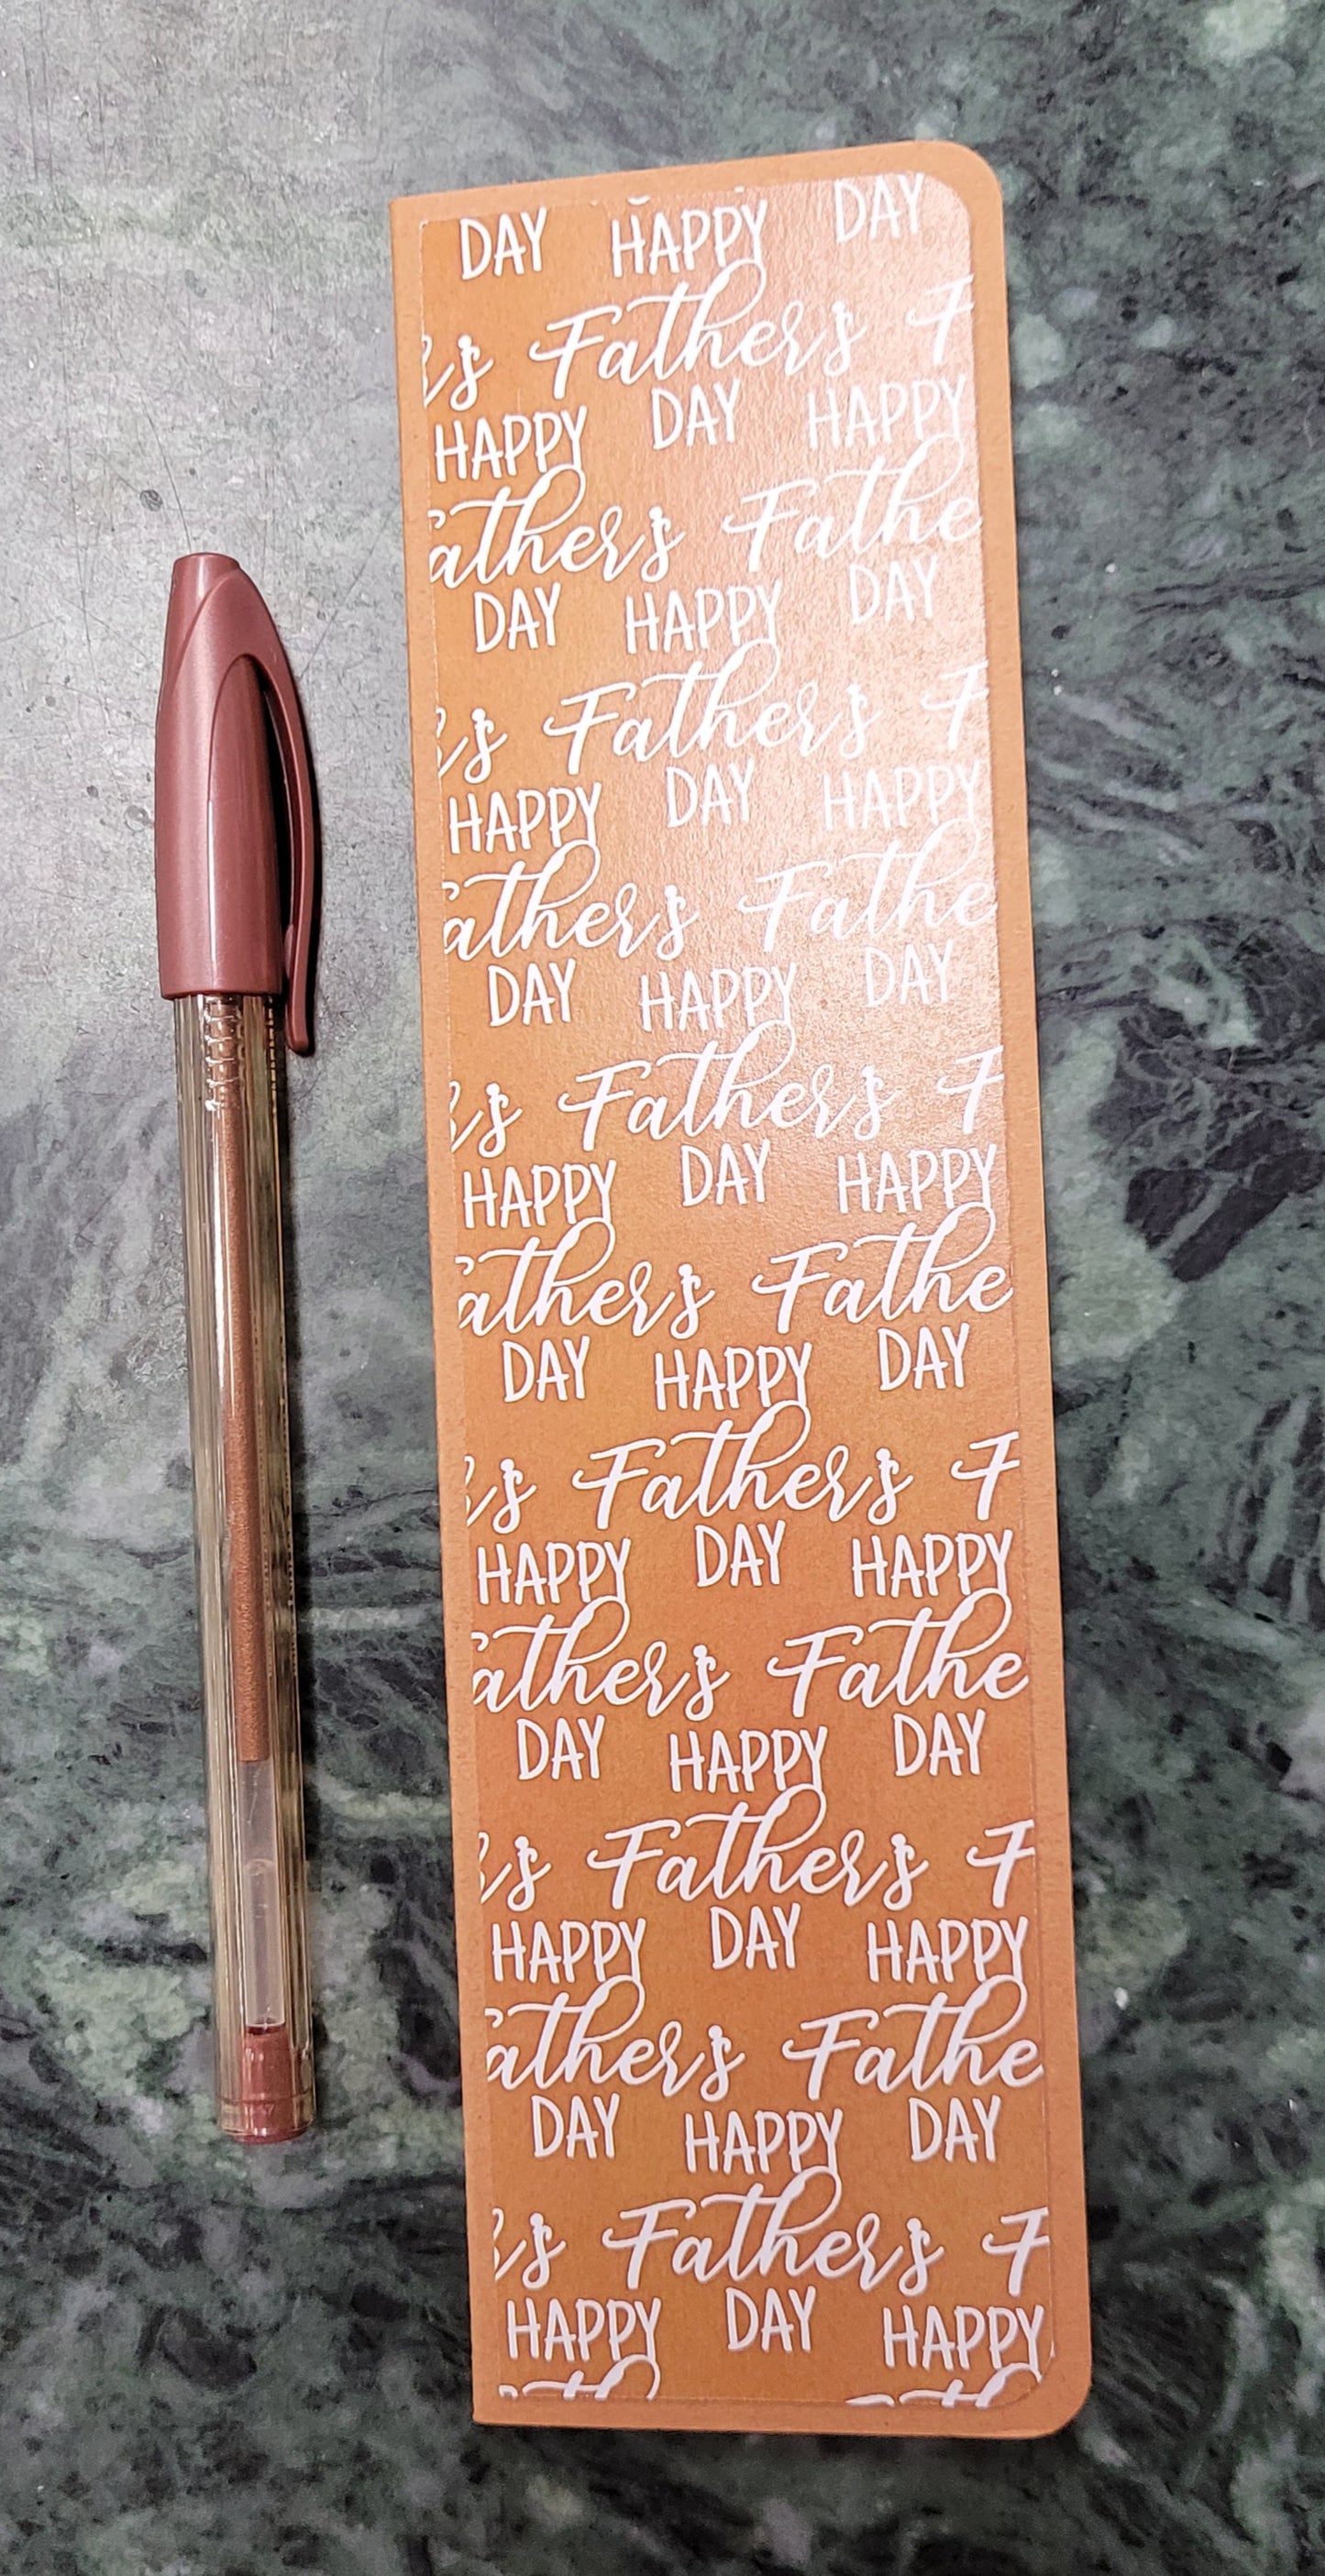 DAY HAPPY DAY
's Fathers F
HAPPY DAY HAPPY
athers Fathe
DAY HAPPY DAY
's Fathers F
HAPPY DAY HAPPY
athers Fathe
DAY HAPPY DAY
's Fathers F
HAPPY DAY HAPPY
athers Fathe
DAY HAPPY DAY
's Fathers F
HAPPY DAY HAPPY
athers Fathe
DAY HAPPY DAY
's Fathers F
HAPPY DAY HAPPY
athers Fathe
DAY HAPPY DAY
's Fathers F
HAPPY DAY HAPPY